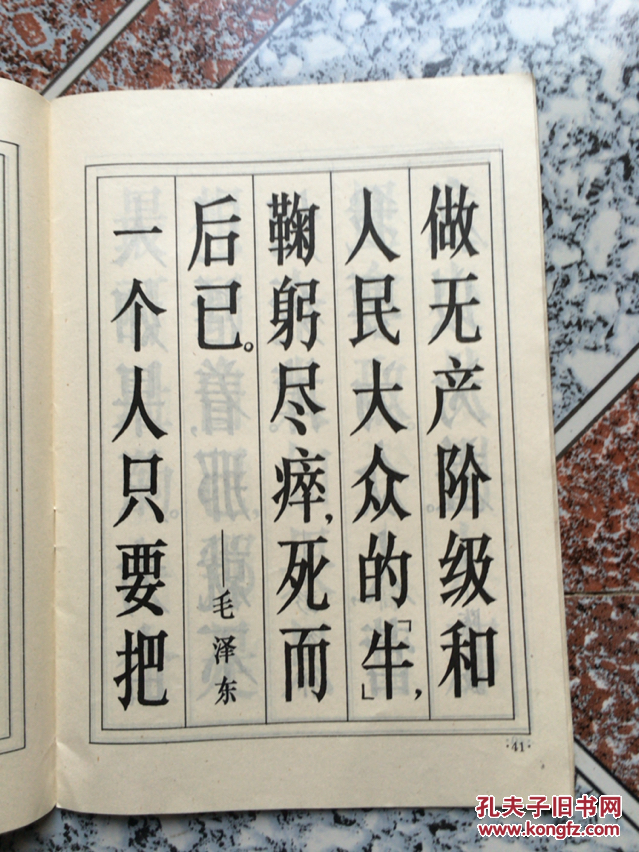 做无产阶级和
人民大众的「牛」，
鞠躬尽瘁，死而
后已。
——毛泽东
一个人只要把
·41·
孔夫子旧书网
www.kongfz.com